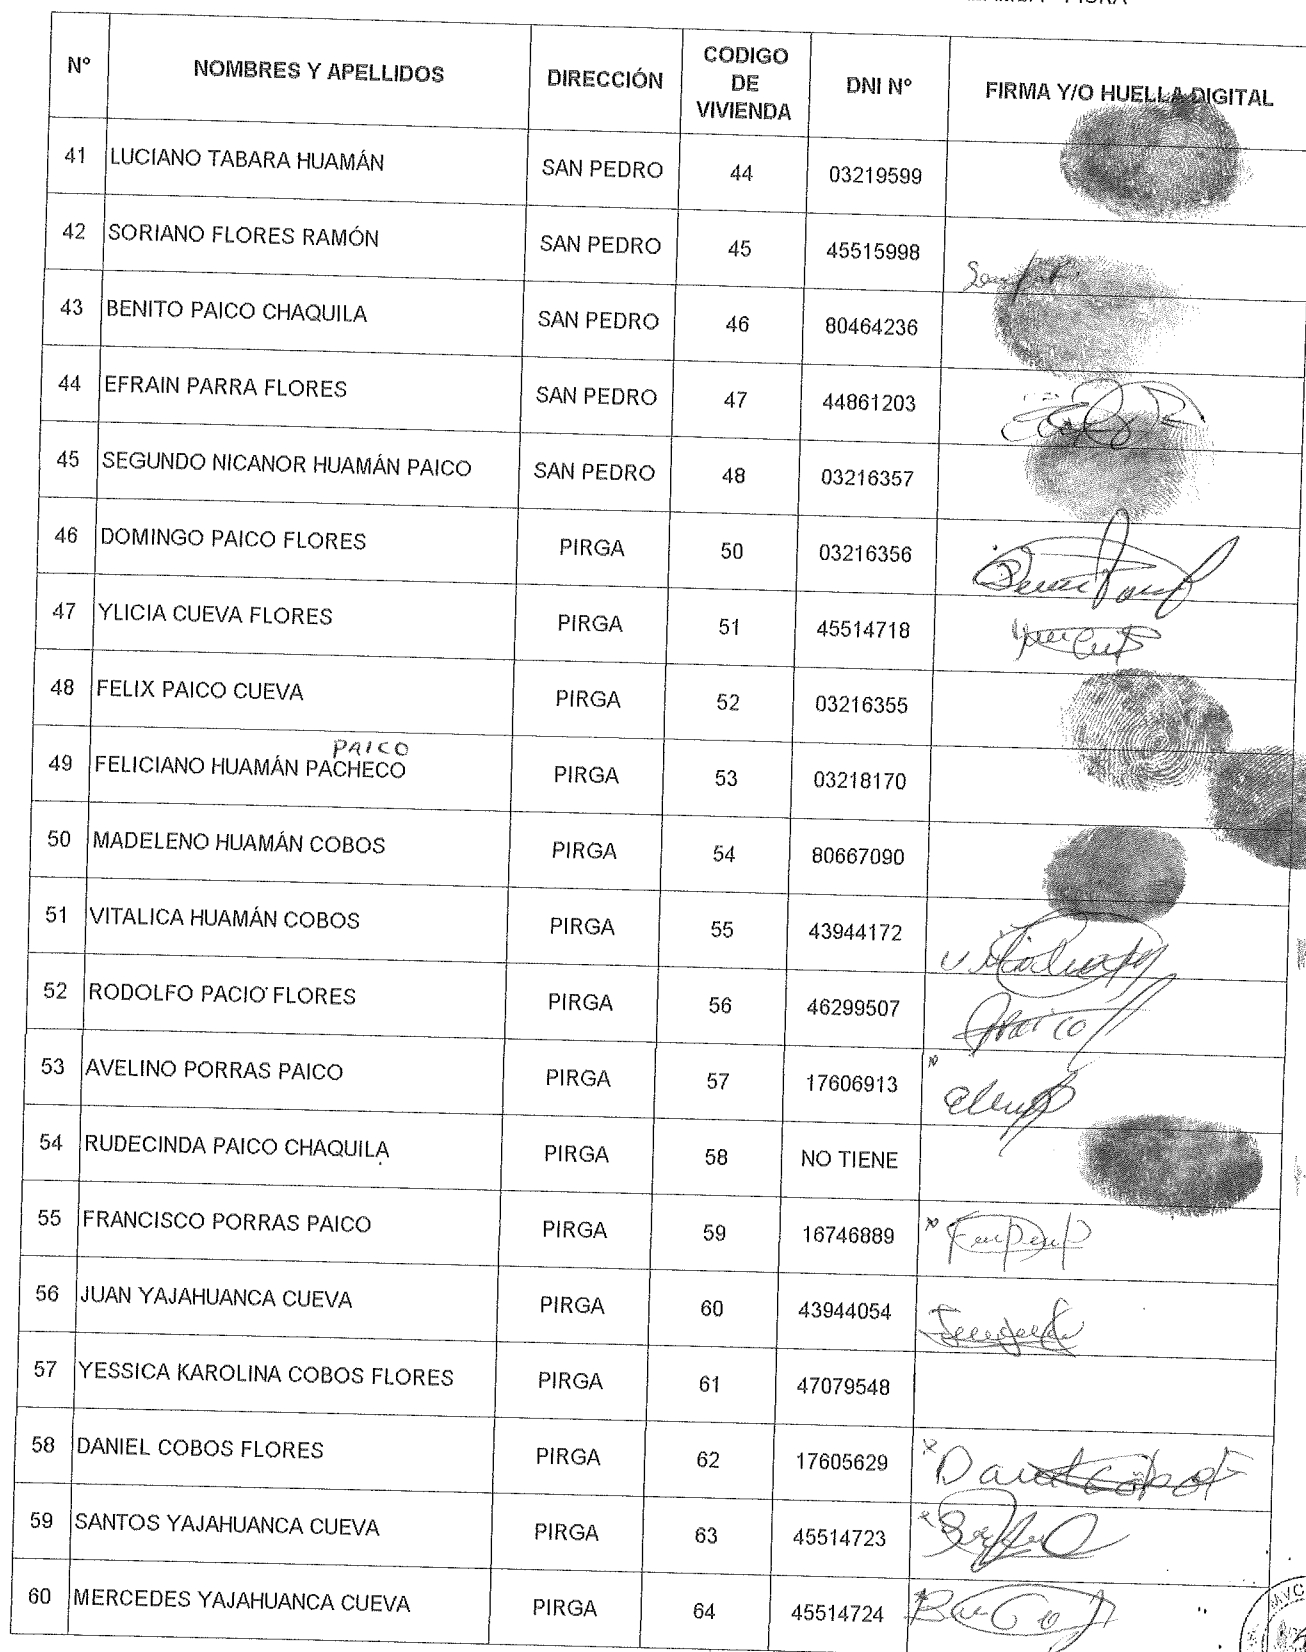 Nº NOMBRES Y APELLIDOS DIRECCIÓN CODIGO DE VIVIENDA DNI Nº FIRMA Y/O HUELLA DIGITAL
41 LUCIANO TABARA HUAMÁN SAN PEDRO 44 03219599
42 SORIANO FLORES RAMÓN SAN PEDRO 45 45515998
43 BENITO PAICO CHAQUILA SAN PEDRO 46 80464236
44 EFRAIN PARRA FLORES SAN PEDRO 47 44861203
45 SEGUNDO NICANOR HUAMÁN PAICO SAN PEDRO 48 03216357
46 DOMINGO PAICO FLORES PIRGA 50 03216356
47 YLICIA CUEVA FLORES PIRGA 51 45514718
48 FELIX PAICO CUEVA PIRGA 52 03216355
PAICO
49 FELICIANO HUAMÁN PACHECO PIRGA 53 03218170
50 MADELENO HUAMÁN COBOS PIRGA 54 80667090
51 VITALICA HUAMÁN COBOS PIRGA 55 43944172
52 RODOLFO PACIO FLORES PIRGA 56 46299507
53 AVELINO PORRAS PAICO PIRGA 57 17606913
54 RUDECINDA PAICO CHAQUILA PIRGA 58 NO TIENE
55 FRANCISCO PORRAS PAICO PIRGA 59 16746889
56 JUAN YAJAHUANCA CUEVA PIRGA 60 43944054
57 YESSICA KAROLINA COBOS FLORES PIRGA 61 47079548
58 DANIEL COBOS FLORES PIRGA 62 17605629
59 SANTOS YAJAHUANCA CUEVA PIRGA 63 45514723
60 MERCEDES YAJAHUANCA CUEVA PIRGA 64 45514724